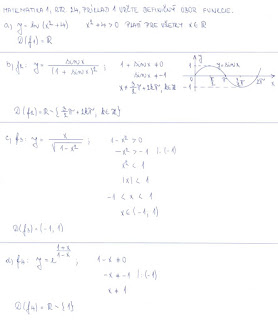 MATEMATIKA 1, STR. 24, PRÍKLAD 1 URČTE DEFINIČNÝ OBOR FUNKCIE.
a) y = ln (x² + 4) x² + 4 > 0 PLATÍ PRE VŠETKY x ∈ R
D(f₁) = R
b) f₂: y = sinx / (1 + sinx)² ; 1 + sinx ≠ 0
sinx ≠ -1
x ≠ 3/2 π + 2kπ, k∈Z
y
1
y = sinx
π
2π
x
-1
D(f₂) = R - {3/2 π + 2kπ, k∈Z}
c) f₃: y = x / √(1 - x²) ; 1 - x² > 0
-x² > -1 |·(-1)
x² < 1
|x| < 1
-1 < x < 1
x ∈ (-1, 1)
D(f₃) = (-1, 1)
d) f₄: y = e^((1+x)/(1-x)) ; 1 - x ≠ 0
-x ≠ -1 |·(-1)
x ≠ 1
D(f₄) = R - {1}